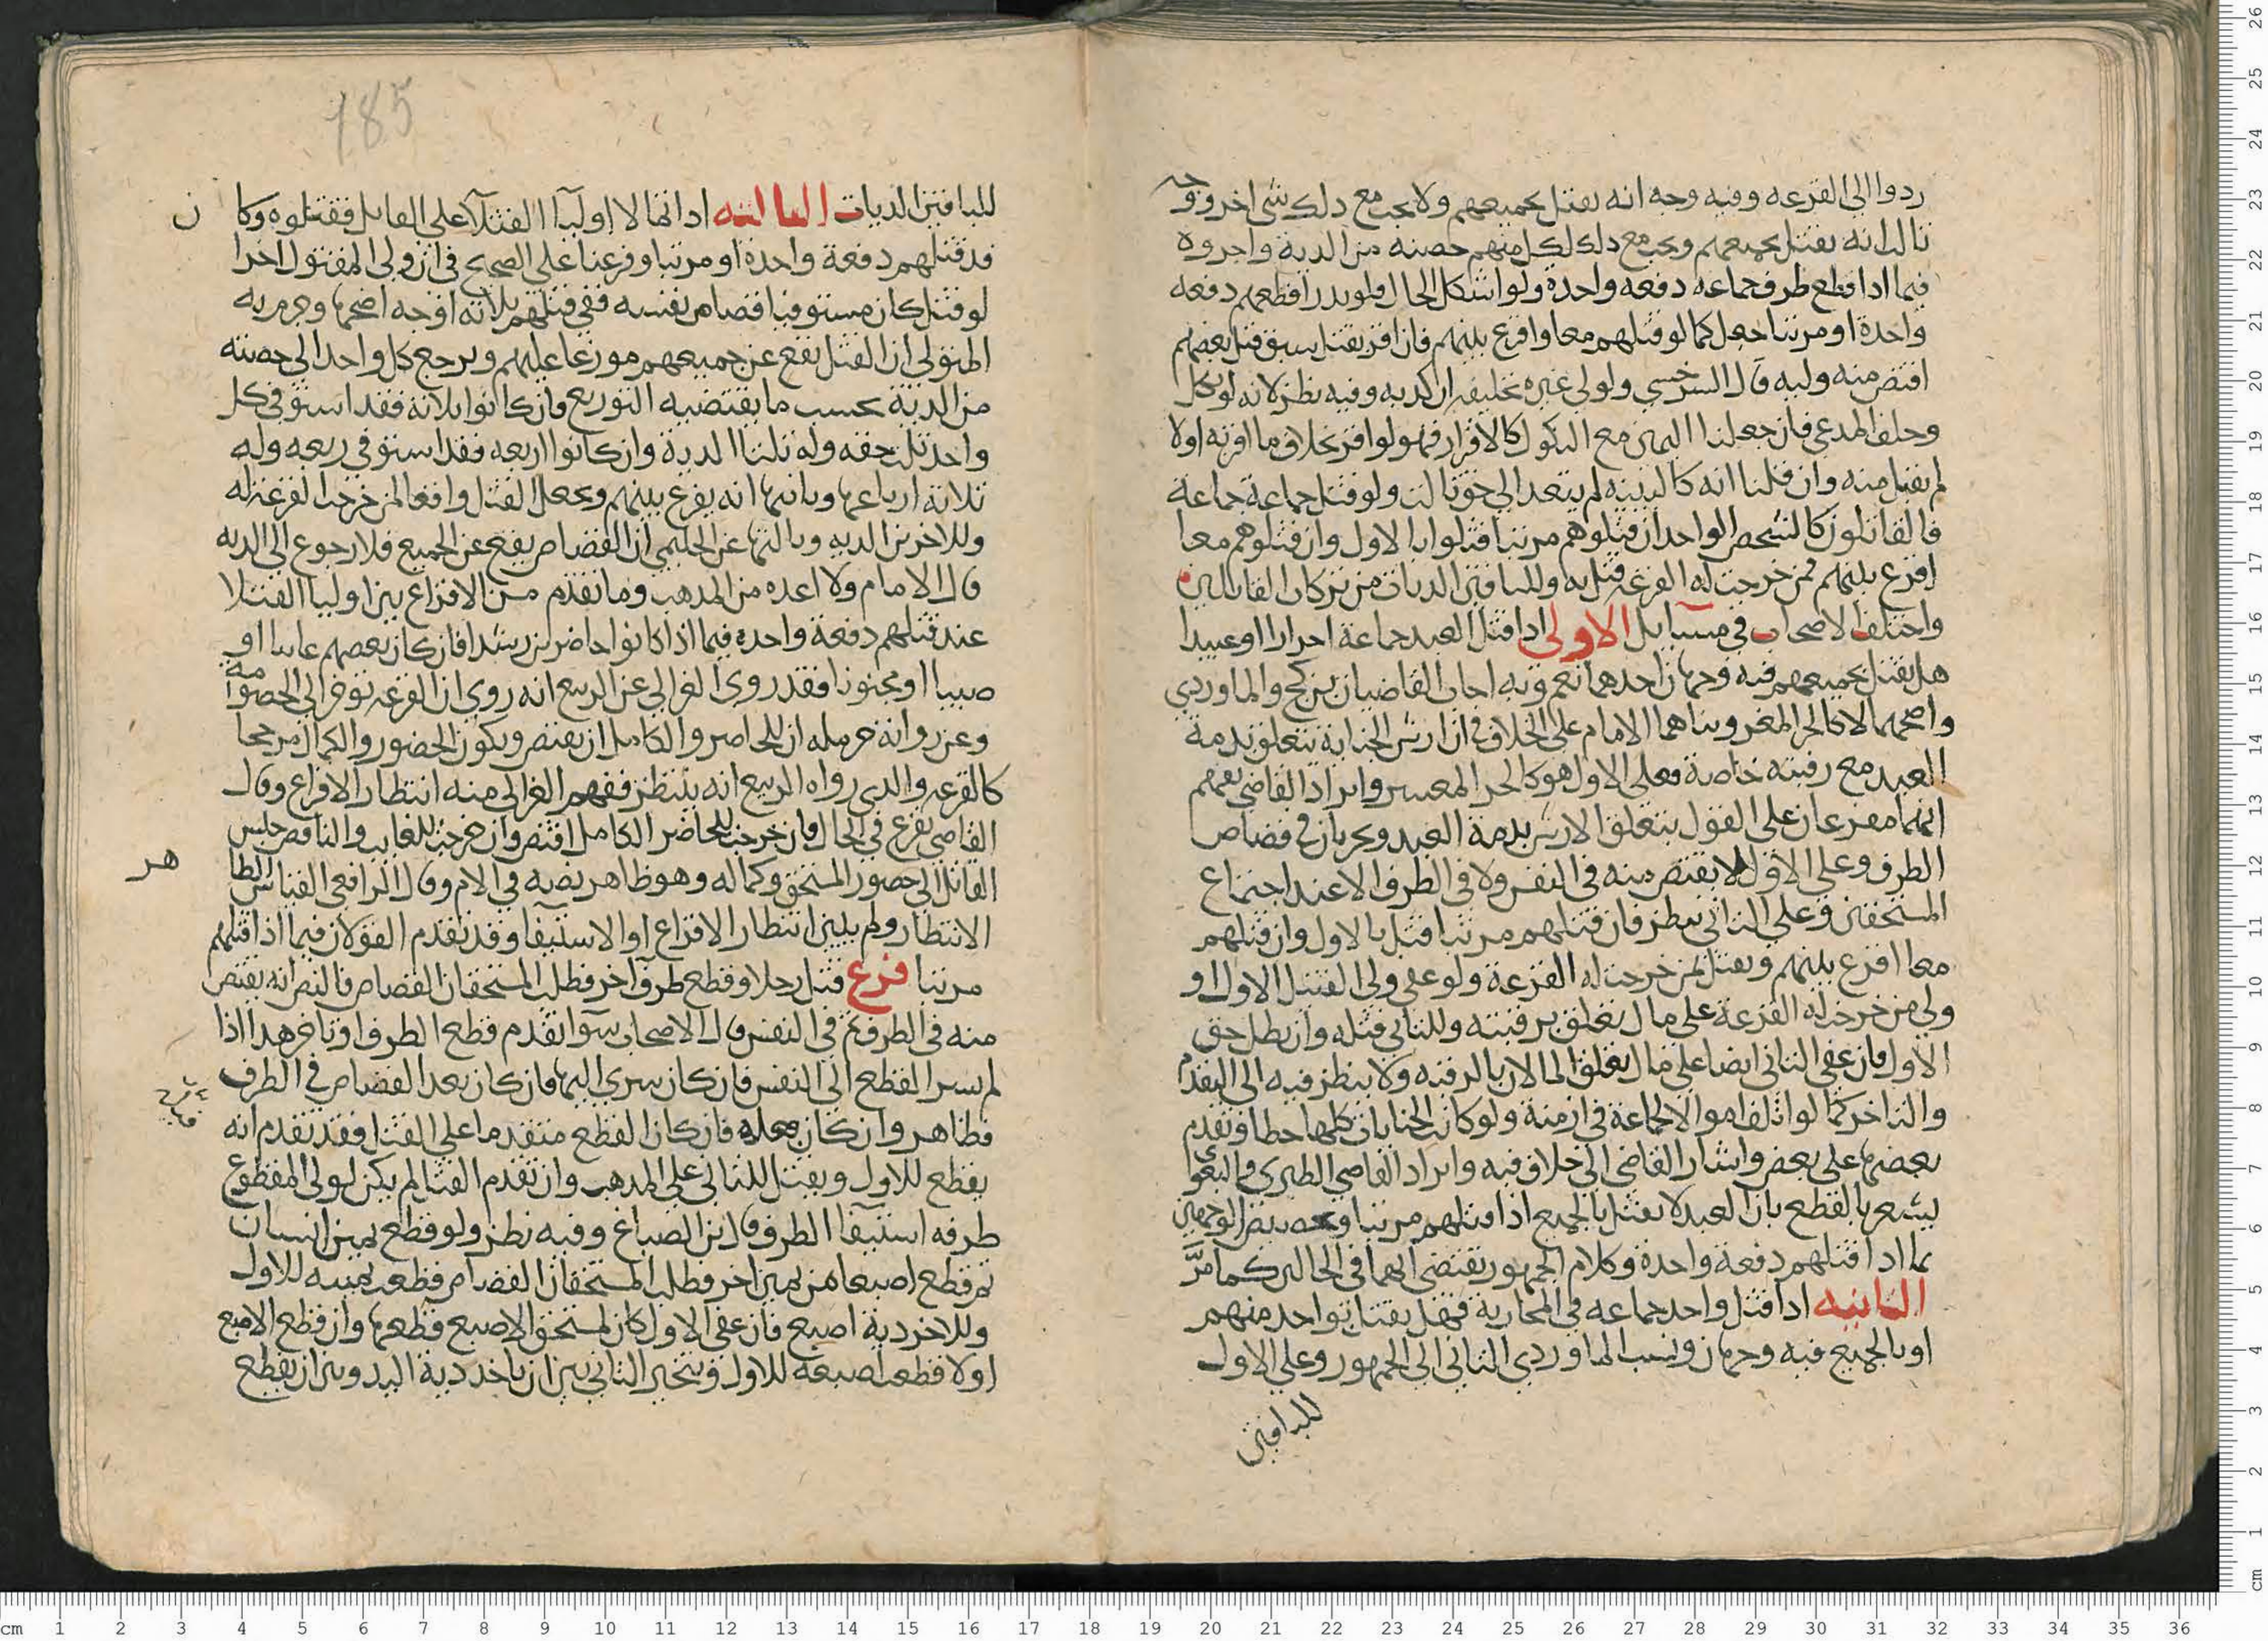 ردوا الى القرعه وفيه وجه انه يقتل بجميعهم ولا يجب مع ذلك شى اخر ووجه
ثالث انه يقتل بجميعهم ويجب مع ذلك لكل منهم حصته من الدية واجروه
فيما اذا قطع طرف جماعه دفعه واحدة ولو اشكل الحال فلم يدر اقطعهم دفعه
واحدة او مرتبا جعل كما لو قتلهم معا واقرع بينهم فان اقر بقتل سبق قتل بعضهم
اقتص منه وليه قال السرخسي ولولى غيره تحليفه ان كذبه وفيه نظر لانه لو نكل
وحلف المدعى فان جعلنا اليمين مع النكول كالاقرار فهو لو اقر بخلاف ما اقر به اولا
لم يقبل منه وان قلنا انه كالبينه لم يتعد الى حق ثالث ولو قتل جماعة جماعة
فالقاتلون كالشخص الواحد ان قتلوهم مرتبا قتلوا بالاول وان قتلوهم معا
اقرع بينهم فمن خرجت له القرعه قتل به وللباقين الديات من تركات القاتلين
واختلف الاصحاب في مسايل الاولى اذا قتل العبد جماعة احرارا او عبيدا
هل يقتل بجميعهم فيه وجهان احدهما نعم وبه اجاب القاضيان بن كج والماوردي
واصحهما لا كالحر المعسر وبناهما الامام على الخلاف في ان ارش الجناية تتعلق بذمة
العبد مع رقبته خاصة فعلى الاول هو كالحر المعسر وايراد القاضي يفهم
انهما مفرعان على القول بتعلق الارش بذمة العبد ويجريان في قصاص
الطرف وعلى الاول لا يقتص منه في النفس ولا في الطرف الا عند اجتماع
المستحقين وعلى الثاني ينظر فان قتلهم مرتبا قتل بالاول وان قتلهم
معا اقرع بينهم ويقتل لمن خرجت له القرعة ولو عفى ولى القتيل الاول او
ولى من خرجت له القرعة على مال تعلق برقبته وللثاني قتله وان بطل حق
الاول فان عفى الثاني ايضا على مال تعلق المالان بالرقبه ولا ينظر فيه الى التقدم
والتاخر كما لو اتلف اموالا لجماعة في ازمنة ولو كانت الجنايات كلها خطا وتقدم
بعضها على بعض واشار القاضي الى خلاف فيه وايراد القاضي الطبرى والبغوي
يشعر بالقطع بان العبد لا يقتل بالجميع اذا قتلهم مرتبا وتخصيص الوجهين
بما اذا قتلهم دفعة واحدة وكلام الجمهور يقتضي انهما في الحالين كما مرَّ
الثانيه اذا قتل واحد جماعه في المحاربة فهل يقتل بواحد منهم
او بالجميع فيه وجهان ونسب الماوردي الثاني الى الجمهور وعلى الاول
للباقين
185
للباقين الديات الثالثه اذا تمالا اوليآ القتلآ على القاتل فقتلوه وكان
قد قتلهم دفعة واحدة او مرتبا وفرعنا على الصحيح في ان ولى المقتول اخرا
لو قتل كان مستوفيا قصاص نفسه ففي قتلهم ثلاثه اوجه اصحها وجزم به
المتولى ان القتل يقع عن جميعهم موزعا عليهم ويرجع كل واحد الى حصته
من الدية بحسب ما يقتضيه التوزيع فان كانوا ثلاثة فقد استوفى كل
واحد ثلث حقه وله ثلثا الدية وان كانوا اربعه فقد استوفى ربعه وله
ثلاثة ارباعها وثانيها انه يقرع بينهم ويجعل القتل واقعا لمن خرجت القرعة له
وللاخرين الديه وثالثها عن الحليمي ان القصاص يقع عن الجميع فلا رجوع الى الديه
قال الامام ولا اعده من المذهب وما تقدم من الاقراع بين اوليا القتلا
عند قتلهم دفعة واحده فيما اذا كانوا حاضرين رشدا فان كان بعضهم غايبا او
صبيا او مجنونا فقد روى الغزالي عن الربيع انه روى ان القرعه توخر الى الخصومة
وعن رواية حرمله ان للحاضر والكامل ان يقتص ويكون الحضور والكمال مرجحا
كالقرعه والذى رواه الربيع انه ينتظر ففهم الغزالى منه انتظار الاقراع وقال
القاضي يقرع في الحال فان خرجت للحاضر الكامل اقتص وان خرجت للغايب والناقص حبس
القاتل الى حضور المستحق وكماله وهو ظاهر نصه في الام وقال الرافعي القياس الظاهر
الانتظار ولم يبين انتظار الاقراع او الاستيفا وقد تقدم القولان فيما اذا قتلهم
مرتبا فرع قتل رجلا وقطع طرف اخر فطلب المستحقان القصاص فالنص انه يقتص
منه في الطرف ثم في النفس قال الاصحاب سوا تقدم قطع الطرف او تاخر هذا اذا
لم يسر القطع الى النفس فان كان سرى اليها فان كان بعد القصاص في الطرف
فظاهر وان كان قبله فان كان القطع متقدما على القتل فقد تقدم انه
يقطع للاول ويقتل للثاني على المذهب وان تقدم القتل لم يكن لولى المقطوع
طرفه استيفا الطرف قال بن الصباغ وفيه نظر ولو قطع يمين انسان
ثم قطع اصبعا من يمين اخر فطلب المستحقان القصاص قطعت يمينه للاول
وللاخر دية اصبع فان عفى الاول كان لمستحق الاصبع قطعها وان قطع الاصبع
اولا قطعت اصبعه للاول ويتخير الثاني بين ان ياخذ دية اليد وبين ان يقطع